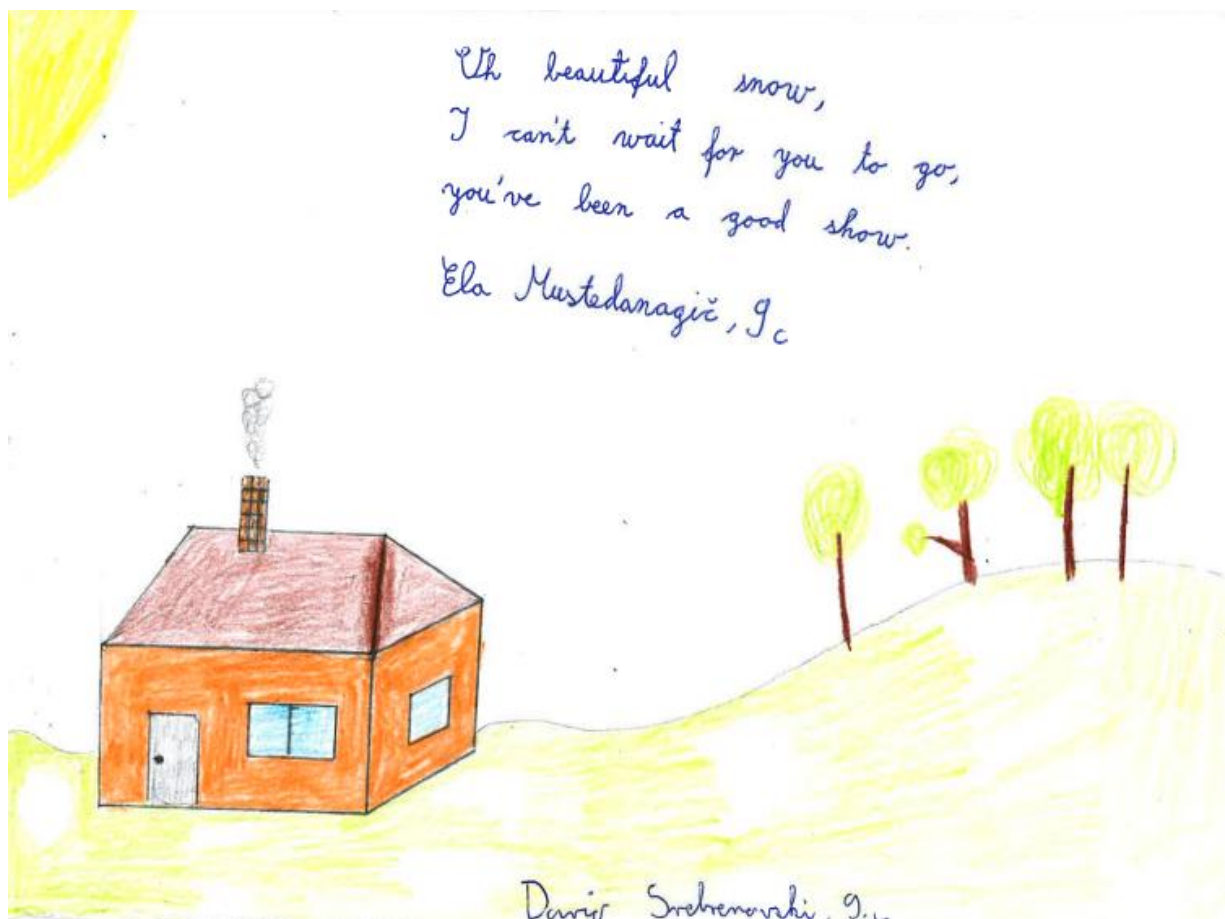 Uh beautiful snow,
I can't wait for you to go,
you've been a good show.
Ela Mustedanagič, 9c
Srebrenovski, 9.